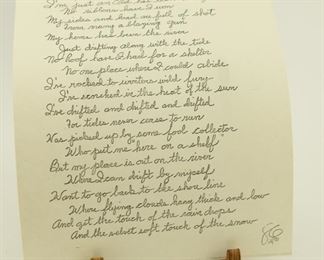 I'm just an old
No ribbons have I won
My sides and head are full of shot
From many a blazing gun
My home has been the river
Just drifting along with the tide
No roof have I had for a shelter
No one place where I could abide
I've rocked to winters wild fury
I've scorched in the heat of the sun
I've drifted and drifted and drifted
For tides never cease to run
Was picked up by some fool collector
Who put me here on a shelf
But my place is out on the river
Where I can drift by myself
Want to go back to the shore line
Where flying clouds hang thick and low
And get the touch of the rain drops
And the velvet soft touch of the snow